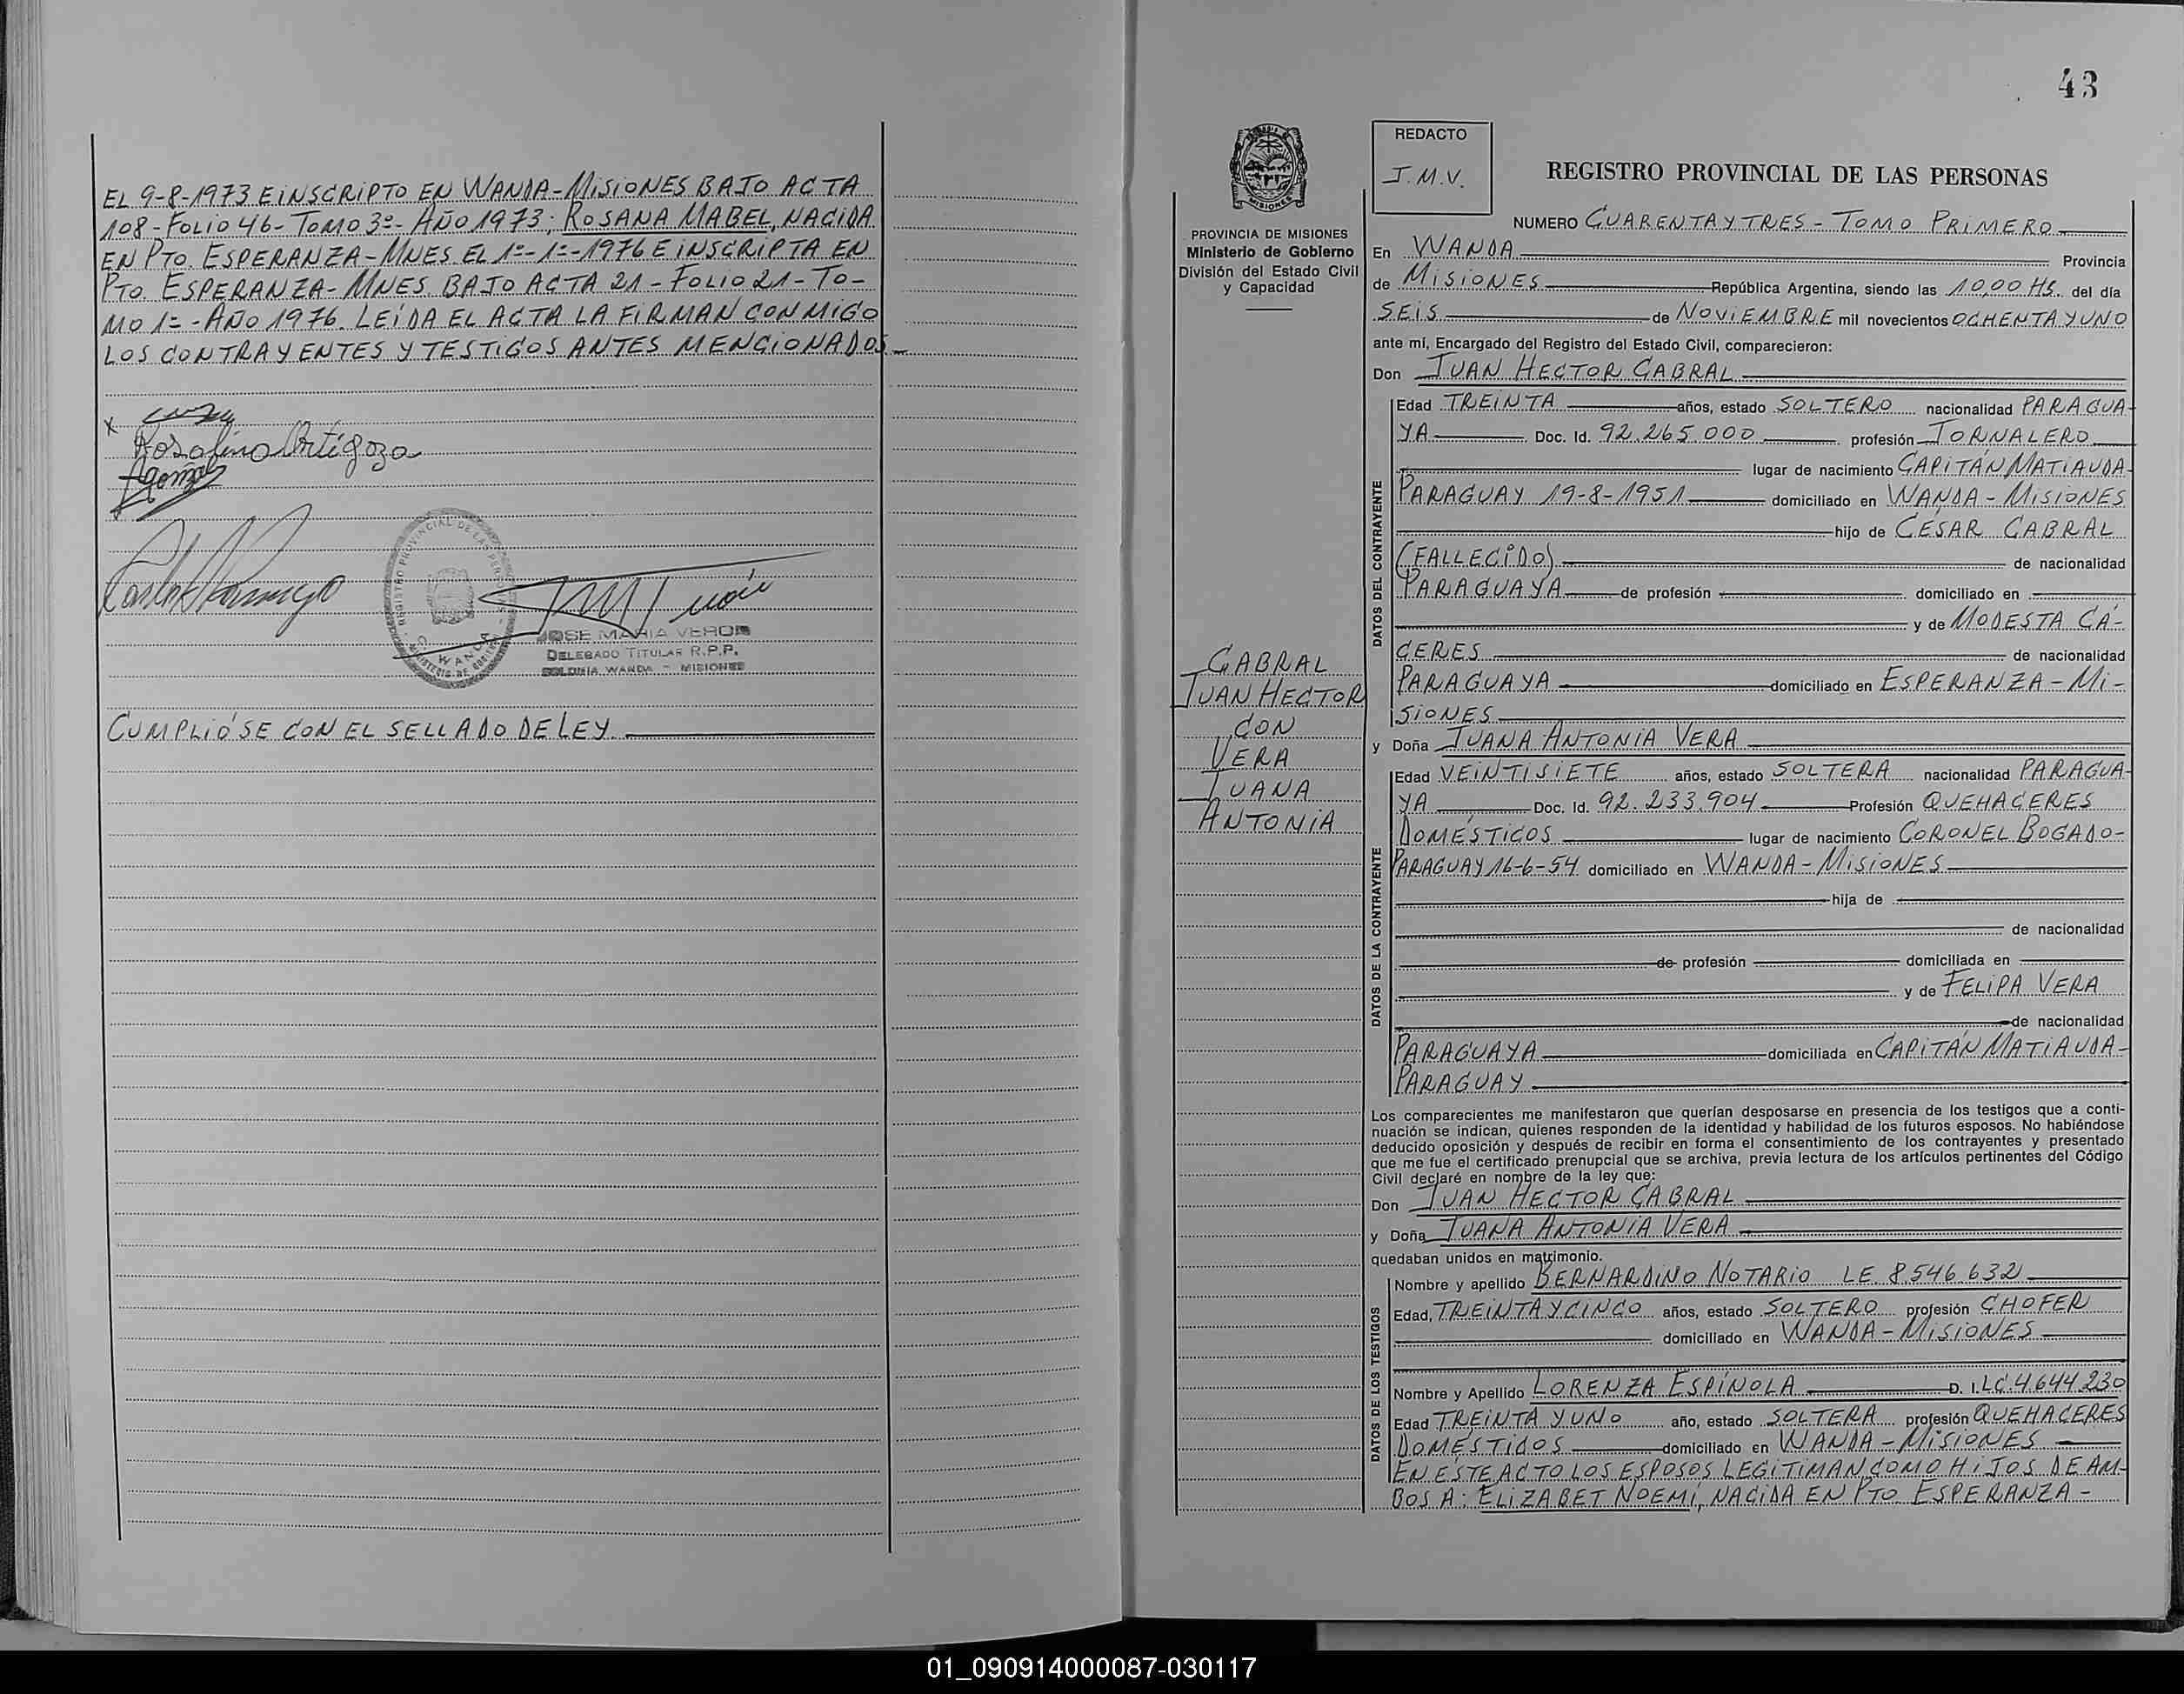 EL 9-8-1973 E iNSCRiPTO EN WANDA-MiSiONES BAJO ACTA
108-FOLiO 46-TOMO 3º-AÑO 1973; ROSANA MABEL, NACiDA
EN PTO. ESPERANZA-MNES EL 1º-1º-1976 E iNSCRiPTA EN
PTO. ESPERANZA-MNES. BAJO ACTA 21-FOLiO 21-TO-
MO 1º-AÑO 1976. LEÍDA EL ACTA LA FiRMAN CONMiGO
LOS CONTRAYENTES Y TESTiGOS ANTES MENCiONADOS.-
x
Rosalino Ortigoza
REGISTRO PROVINCIAL DE LAS PERSONAS
WANDA
JOSE MARIA VERON
DELEGADO TITULAR R.P.P.
COLONIA WANDA - MISIONES
CUMPLiÓSE CON EL SELLADO DE LEY.
43
REDACTO
J.M.V.
REGISTRO PROVINCIAL DE LAS PERSONAS
MISIONES
PROVINCIA DE MISIONES
Ministerio de Gobierno
División del Estado Civil
y Capacidad
NUMERO CUARENTA Y TRES - TOMO PRiMERO
En WANDA Provincia
de MiSiONES República Argentina, siendo las 10,00 HS. del día
SEiS de NOViEMBRE mil novecientos OCHENTA Y UNO
ante mí, Encargado del Registro del Estado Civil, comparecieron:
Don JUAN HECTOR CABRAL
Edad TREiNTA años, estado SOLTERO nacionalidad PARAGUA-
YA Doc. Id. 92.265.000 profesión JORNALERO
lugar de nacimiento CAPiTÁN MATiAUDA-
PARAGUAY 19-8-1951 domiciliado en WANDA-MiSiONES
hijo de CÉSAR CABRAL
(FALLECiDO) de nacionalidad
PARAGUAYA de profesión domiciliado en
y de MODESTA CÁ-
CERES de nacionalidad
PARAGUAYA domiciliado en ESPERANZA-Mi-
SiONES
DATOS DEL CONTRAYENTE
CABRAL
JUAN HECTOR
CON
VERA
JUANA
ANTONiA
y Doña JUANA ANTONiA VERA
Edad VEiNTiSiETE años, estado SOLTERA nacionalidad PARAGUA-
YA Doc. Id. 92.233.904 Profesión QUEHACERES
DOMÉSTiCOS lugar de nacimiento CORONEL BOGADO-
PARAGUAY 16-6-54 domiciliado en WANDA-MiSiONES
hija de
de nacionalidad
de profesión domiciliada en
y de FELiPA VERA
de nacionalidad
PARAGUAYA domiciliada en CAPiTÁN MATiAUDA-
PARAGUAY
DATOS DE LA CONTRAYENTE
Los comparecientes me manifestaron que querían desposarse en presencia de los testigos que a conti-
nuación se indican, quienes responden de la identidad y habilidad de los futuros esposos. No habiéndose
deducido oposición y después de recibir en forma el consentimiento de los contrayentes y presentado
que me fue el certificado prenupcial que se archiva, previa lectura de los artículos pertinentes del Código
Civil declaré en nombre de la ley que:
Don JUAN HECTOR CABRAL
y Doña JUANA ANTONiA VERA
quedaban unidos en matrimonio.
Nombre y apellido BERNARDiNO NOTARiO LE. 8.546.632
Edad, TREiNTA Y CiNCO años, estado SOLTERO profesión CHOFER
domiciliado en WANDA-MiSiONES
Nombre y Apellido LORENZA ESPÍNOLA D. I. LC.4644.230
Edad TREiNTA Y UNO año, estado SOLTERA profesión QUEHACERES
DOMÉSTiCOS domiciliado en WANDA-MiSiONES
DATOS DE LOS TESTIGOS
EN ÉSTE ACTO LOS ESPOSOS LEGiTiMAN COMO HiJOS DE AM-
BOS A: ELiZABET NOEMÍ, NACiDA EN PTO. ESPERANZA-
01_090914000087-030117